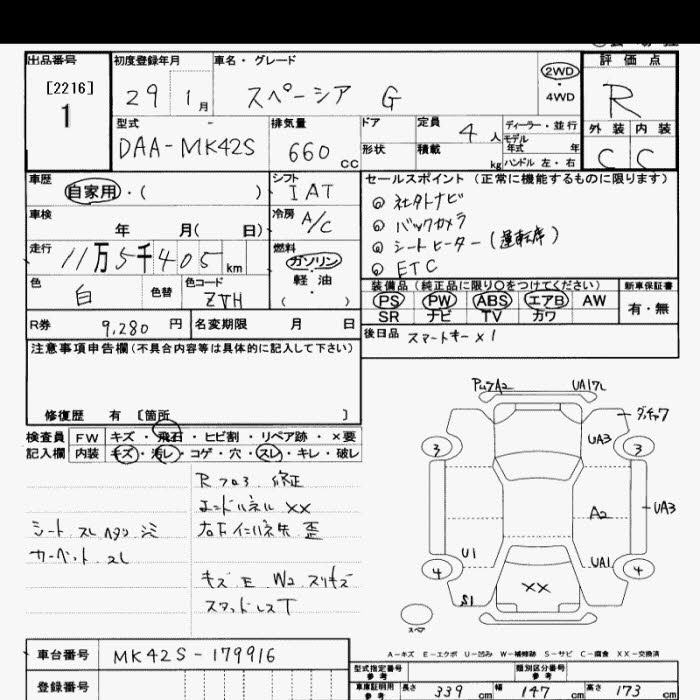 出品番号 初度登録年月 車名・グレード 評価点
[2216] 1 29 1月 スペーシア G 2WD・4WD R
型式 排気量 ドア 定員 4人 ディーラー・並行 外装 内装
DAA-MK42S 660cc 形状 積載 kg モデル年式 年 ハンドル 左・右 C C
車歴 シフト セールスポイント (正常に機能するものに限ります)
自家用・( ) IAT ◎ 社外ナビ
車検 年 月( 日) 冷房 A/C ◎ バックカメラ
走行 11万5千405km 燃料 ガソリン・軽油・( ) ◎ シートヒーター(運転席)
◎ ETC
色 白 色替 色コード ZVH 装備品(純正品に限り○をつけてください) 新車保証書
PS PW ABS エアB AW 有・無
SR ナビ TV カワ
R券 9,280円 名変期限 月 日 後日品 スマートキー×1
注意事項申告欄(不具合内容等は具体的に記入して下さい)
修復歴 有 〔箇所 〕
検査員 FW キズ・飛石・ヒビ割・リペア跡・×要
記入欄 内装 キズ・汚レ・コゲ・穴・スレ・キレ・破レ
Rフロ3.修正
エンドパネル ××
シート スレ ヘタリ シミ
カーペット スレ
キズ E W2 スリキズ
スタッドレスT
A2 UA17L
UA3
3 3
UA3
A2
U1 UA1
4 4
S1 ××
スペア
A-キズ E-エクボ U-凹み W-補修跡 S-サビ C-腐食 XX-交換済
車台番号 MK42S-179916
登録番号 型式指定番号 参考 類別区分番号 参考
車庫証明用 参考 長さ 339cm 幅 147cm 高さ 173cm